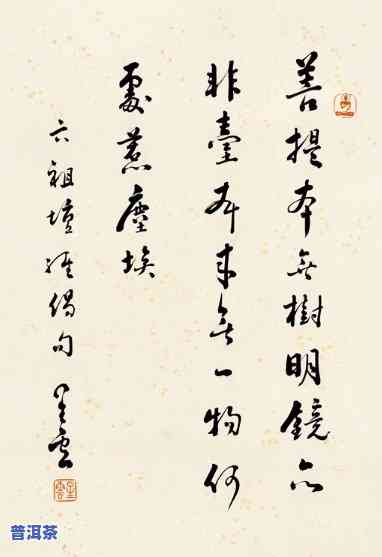 菩提本無樹明鏡亦
非臺本来無一物何
處惹塵埃
六祖壇經偈句 星雲
星雲
普洱茶